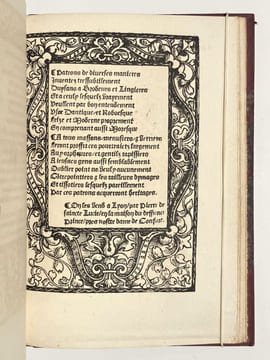 Patrons de diverses manieres
Inventez tressubtilement
Duysans a Brodeurs et Lingieres
Et a ceulx lesquelz vrayement
Veullent par bon entendement
User Dantique, et Roboesque
Frize et Moderne proprement
En comprenant aussi Moresque
A tous massons, menuisiers, & verriers
feront prouffit ces pourtraictz largement
Aux orpheures, et gentilz tapissiers
A jeunes gens aussi semblablement
Oublier point ne veulx aucunement
Contrepointiers & les tailleurs dymages
Et tissotiers lesquelz pareillement
Par ces patrons acquerront heritages.
On les vend a Lyon, par Pierre de
saincte Lucie, en la maison du deffunct
Prince, pres nostre dame de Confort.